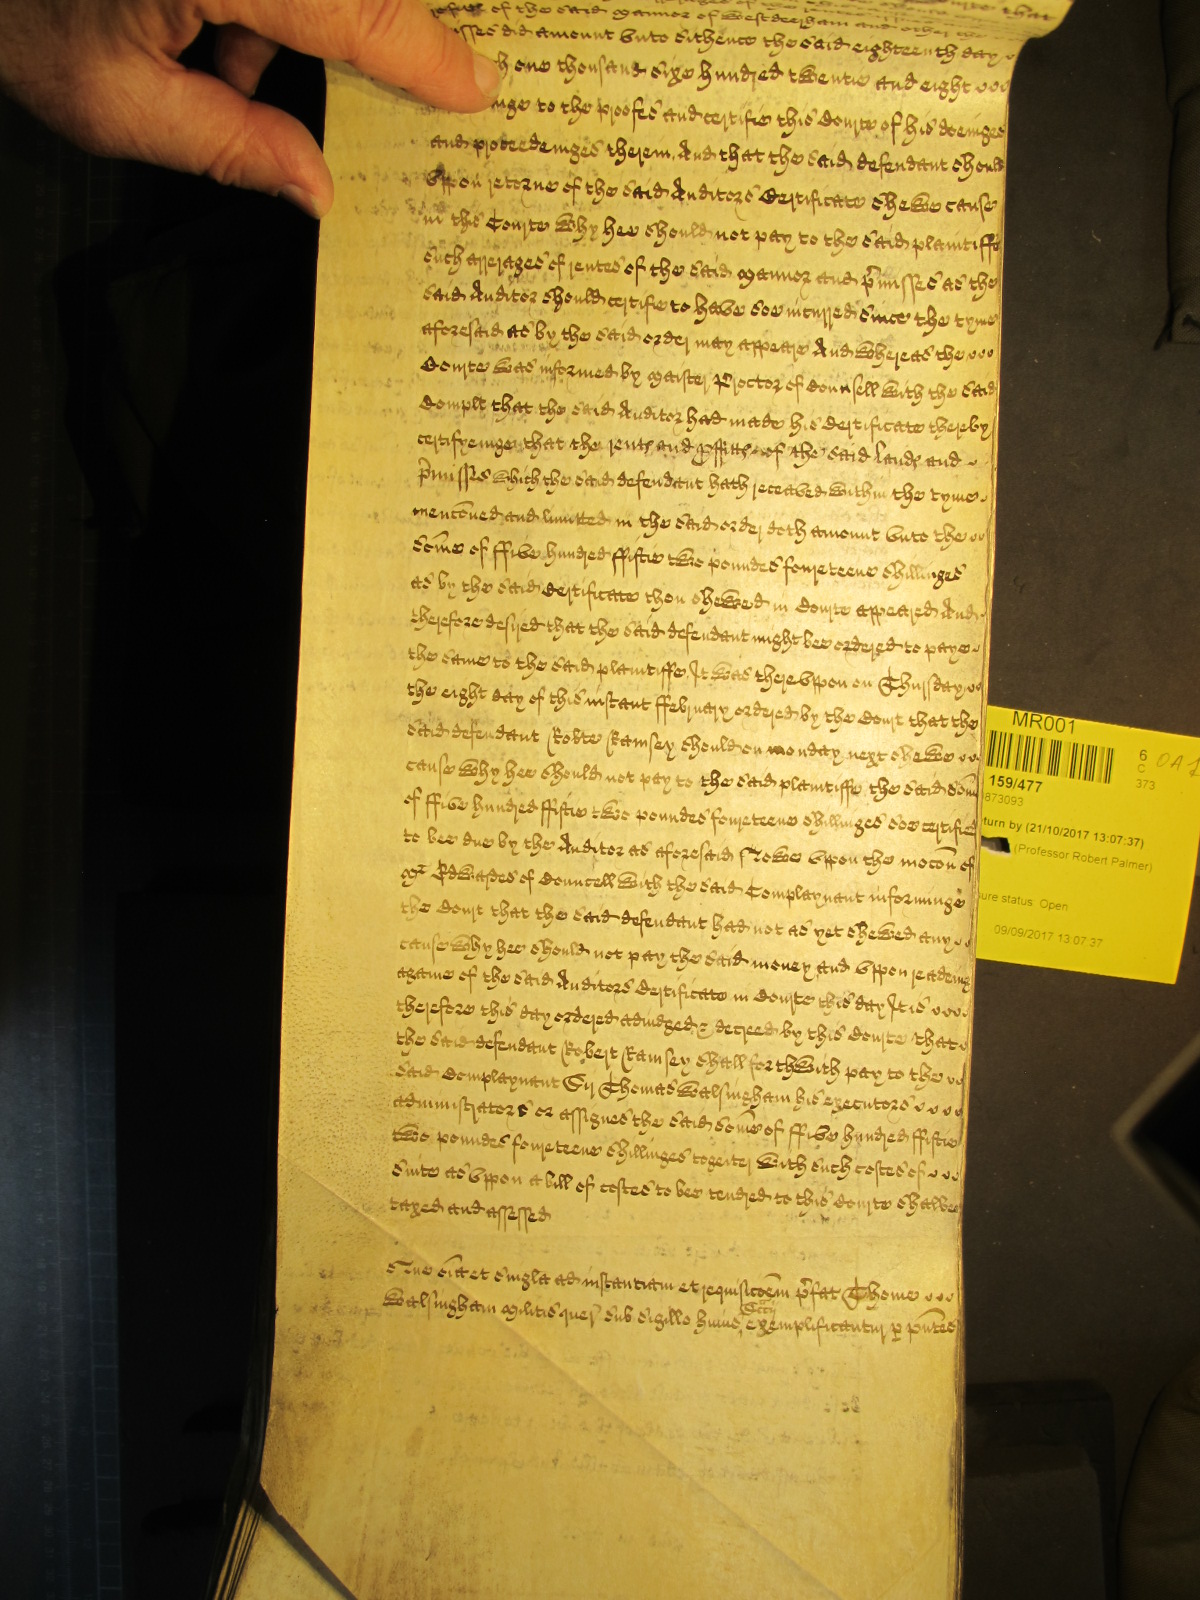 of the said mannor of Westderham and other the
did amount vnto sithence the said eighteenth day
one thousand sixe hundred twentie and eight
to the proofes and certifie this Courte of his doeinges
and proceedeinges therein. And that the said defendant should
vppon retorne of the said Auditors Certificate shewe cause
in this Courte why hee should not pay to the said plaintiffe
such arrerages of rentes of the said mannor and p'misses as the
said Auditor should certifie to have soe incurred since the tyme
aforesaid as by the said order may appeare And whereas the
Courte was informed by maister Proctor of Counsell with the said
Complt that the said Auditor had made his Certificate thereby
certifyeinge that the rents and proffitts of the said lands and
p'misses which the said defendant hath receaved within the tyme
menconed and limitted in the said order doth amount vnto the
some of ffive hundred ffiftie two poundes foureteene shillinges
as by the said Certificate then shewed in Courte appeared And
therefore desired that the said defendant might bee ordered to paye
the same to the said plaintiffe. It was therevppon on Thursday
the eight day of this instant ffebruary ordered by the Court that the
said defendant Robte Ramsey should on monday next shewe
cause why hee should not pay to the said plaintiffe the said some
of ffive hundred ffiftie two poundes foureteene shillinges soe certified
to bee due by the Auditor as aforesaid Nowe vppon the mocon of
Mr Edwardes of Councell with the said Complaynant informinge
the Court that the said defendant had not as yet shewed any
cause why hee should not pay the said money and vppon readeing
againe of the said Auditors Certificate in Courte this day It is
therefore this day ordered adiudged & decreed by this Courte that
the said defendant Robert Ramsey shall forthwith pay to the
said Complaynant Sir Thomas Walsingham his executors
administrators or assignes the said some of ffive hundred ffiftie
two poundes foureteene shillinges togeiter with such costes of
suite as vppon a bill of costes to bee tendred to this Courte shalbee
taxed and assessed
Que o'ia et singla ad instantiam et requisicoem p'fat Thome
Walsingham militis quer' sub sigillo huius Sccij exemplificantur p p'ntes
MR001
6
C
373
159/477
873093
turn by (21/10/2017 13:07:37)
(Professor Robert Palmer)
ure status: Open
09/09/2017 13:07:37